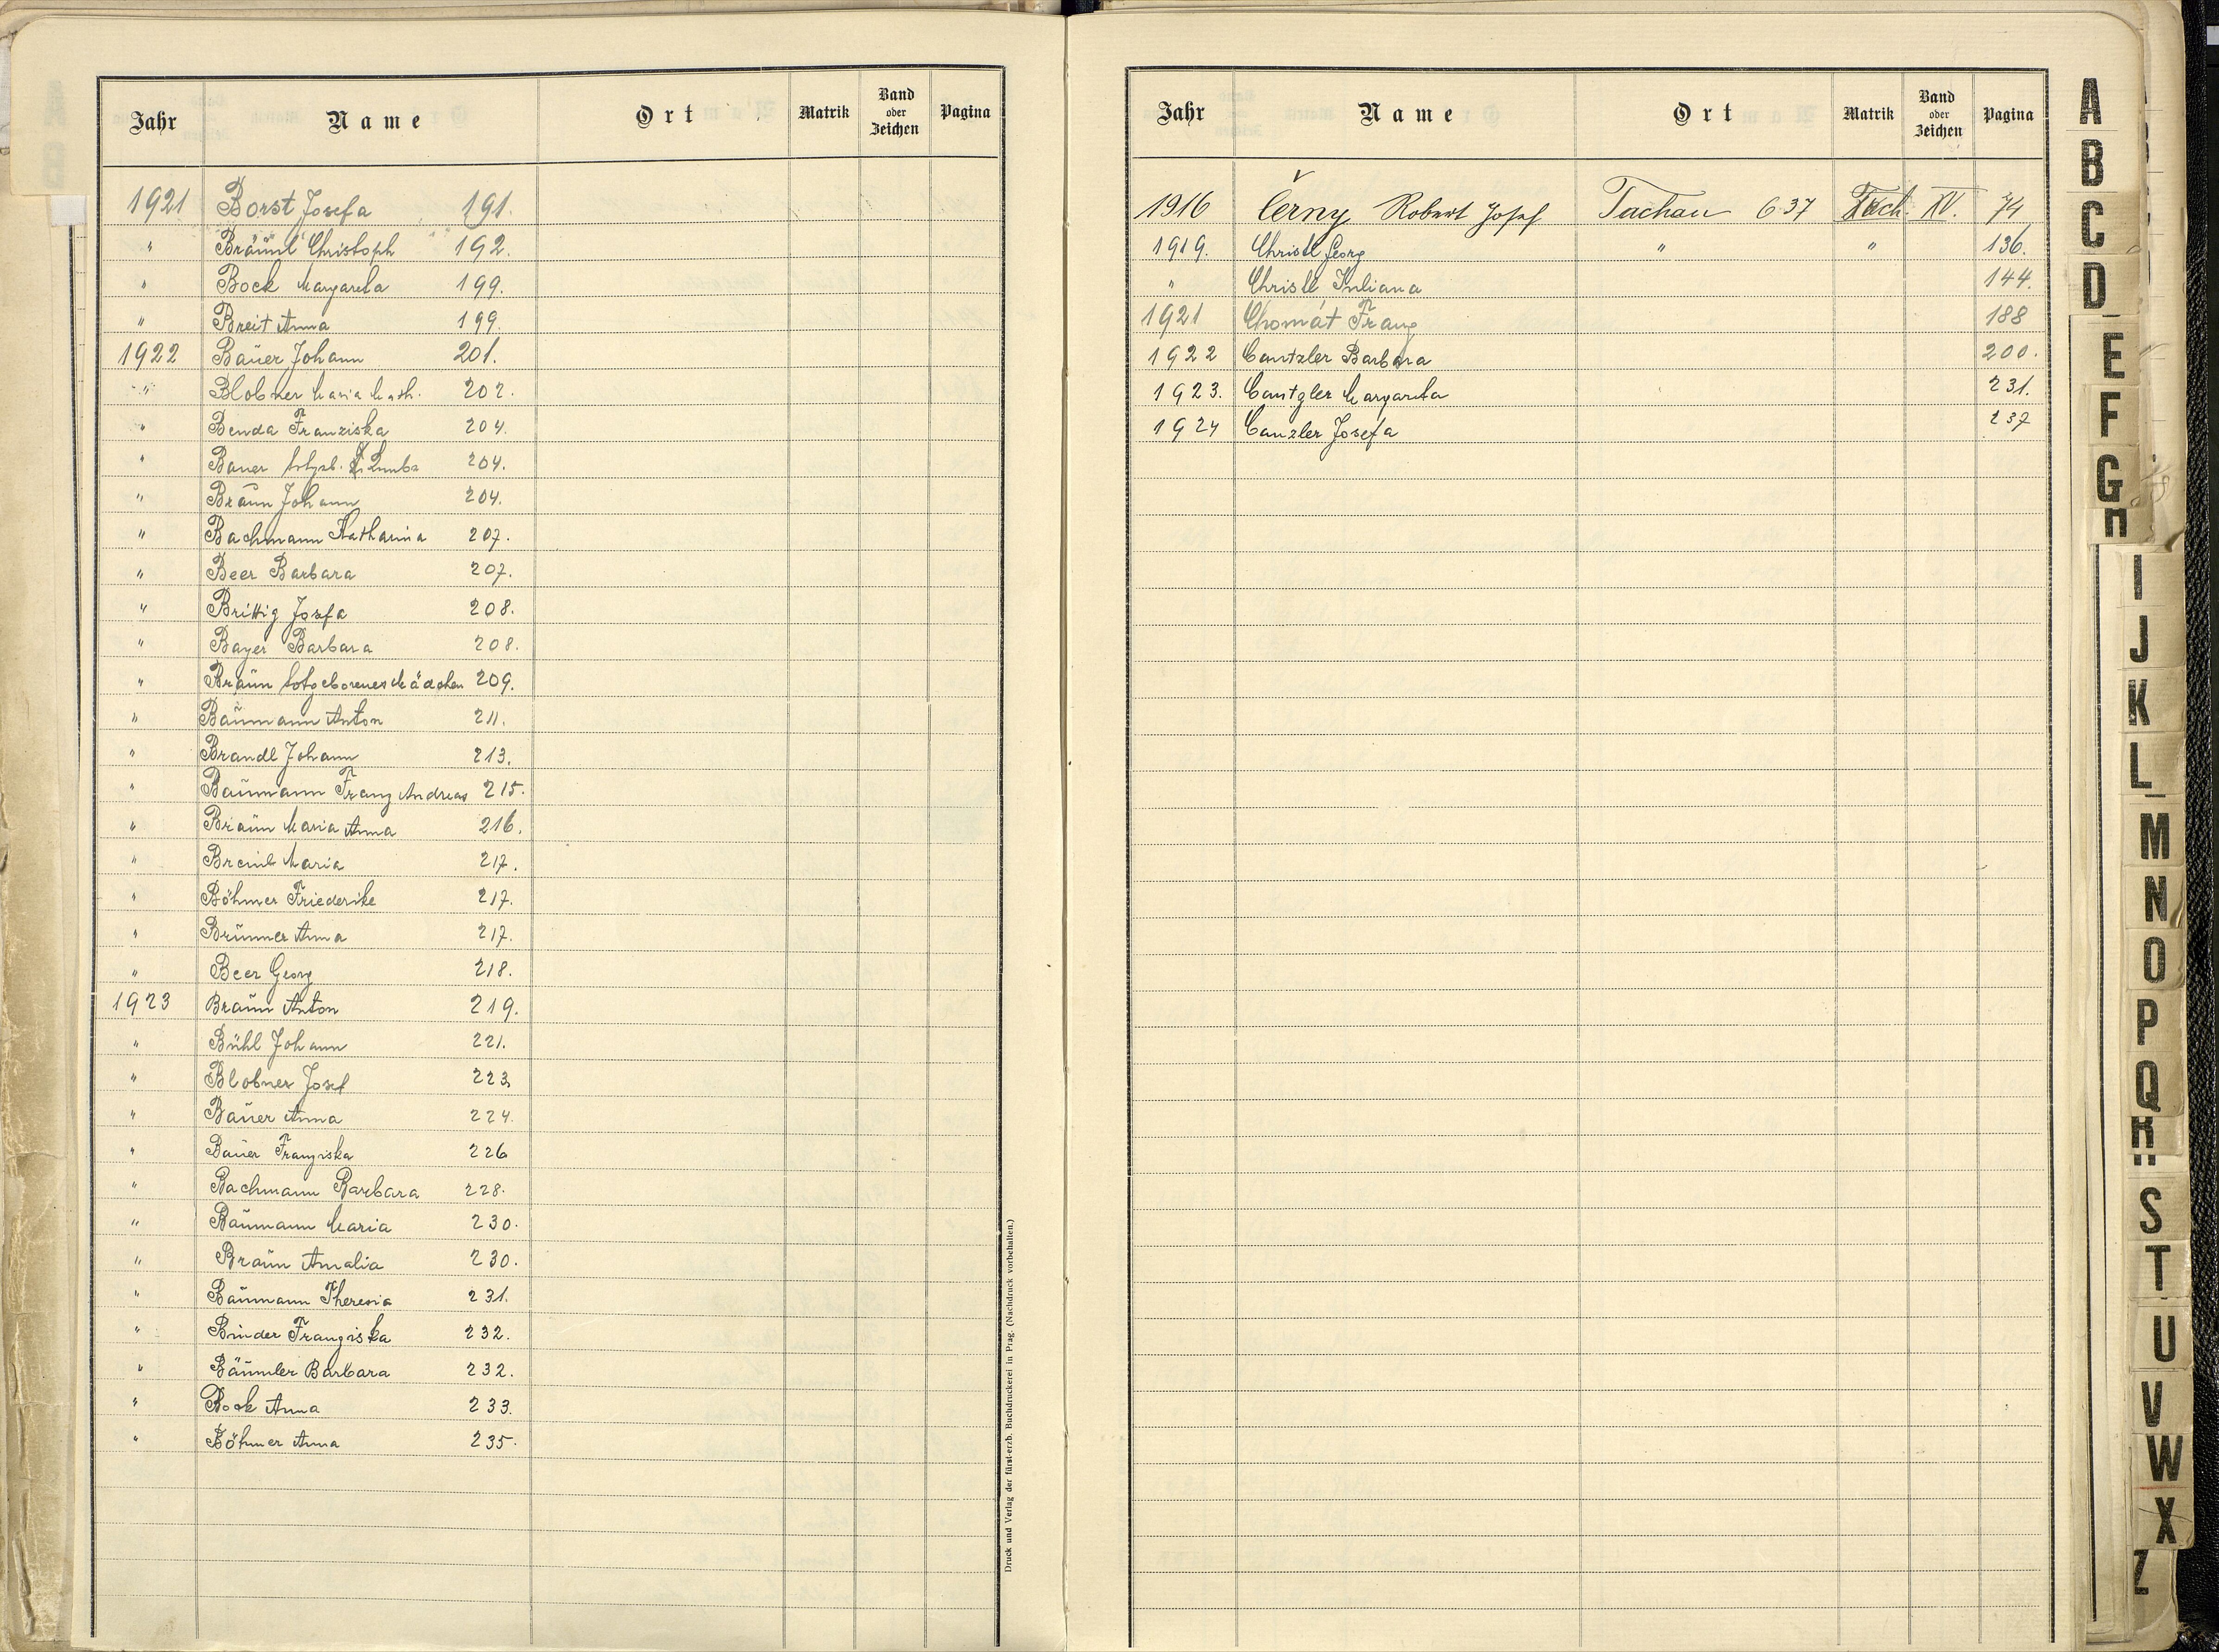 Jahr Name Ort Matrik Band oder Zeichen Pagina
1921 Borst Josefa 191.
" Bräunl Christoph 192.
" Bock Margareta 199.
" Breit Anna 199.
1922 Bauer Johann 201.
" Blobner Maria Math. 202.
" Benda Franziska 204.
" Bauer totgeb. 204.
" Braun Johann 204.
" Bachmann Katharina 207.
" Beer Barbara 207.
" Brittig Josefa 208.
" Bayer Barbara 208.
" Braun totgeborenes Mädchen 209.
" Baumann Anton 211.
" Brandl Johann 213.
" Baumann Franz Andreas 215.
" Braun Maria Anna 216.
" Maria 217.
" Böhmer Friederike 217.
" Brunner Anna 217.
" Beer Georg 218.
1923 Braun Anton 219.
" Bühl Johann 221.
" Blobner Josef 223.
" Bauer Anna 224.
" Bauer Franziska 226
" Bachmann Barbara 228.
" Baumann Maria 230.
" Braun Amalia 230.
" Baumann Theresia 231.
" Binder Franziska 232.
" Bäumler Barbara 232.
" Bock Anna 233.
" Böhmer Anna 235.
Druck und Verlag der fürst-erzb. Buchdruckerei in Prag. (Nachdruck vorbehalten.)
Jahr Name Ort Matrik Band oder Zeichen Pagina
1916 Černy Robert Josef Tachau 637 Tach. XV. 74
1919. Christl Georg " " 136.
" Christl Juliana 144.
1921 Chomát Franz 188
1922 Cantzler Barbara 200.
1923. Cantzler Margareta 231.
1924 Canzler Josefa 237
A
B
C
D
E
F
G
H
I
J
K
L
M
N
O
P
Q
R
S
T
U
V
W
X
Z